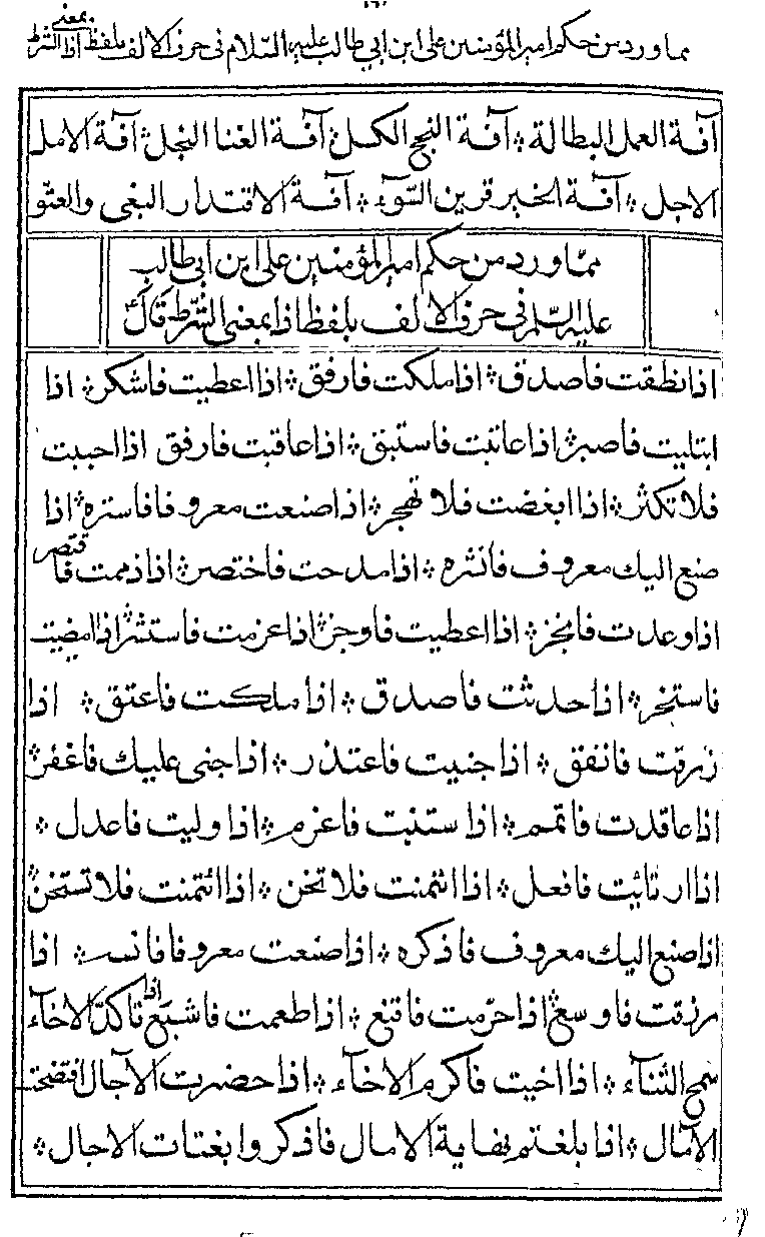 مما ورد من حكم امير المؤمنين على ابن ابي طالب عليه السّلام في حرف الالف بلفظ اذا بمعنى الشرط
آفة العمل البطالة ؞ آفة النجح الكسل ؞ آفة الغنا البخل ؞ آفة الامل
الاجل ؞ آفة الخير قرين السّوء ؞ آفة الاقتدار البغى والعتوّ
ممّا ورد من حكم امير المؤمنين على ابن ابى طالب
عليه السلم فى حرف الالف بلفظ اذا بمعنى الشّرط قال
اذا نطقت فاصدق ؞ اذا ملكت فارفق ؞ اذا اعطيت فاشكر ؞ اذا
ابتليت فاصبر ؞ اذا عاتبت فاستبق ؞ اذا عاقبت فارفق اذا احببت
فلا تكثر ؞ اذا ابغضت فلا تهجر ؞ اذا صنعت معروفا فاستره ؞ اذا
صنع اليك معروف فانثره ؞ اذا مدحت فاختصر ؞ اذا ذممت فاقتصر
اذا وعدت فانجز ؞ اذا اعطيت فاوجز ؞ اذا عزمت فاستشر ؞ اذا امضيت
فاستخر ؞ اذا حدثت فاصدق ؞ اذا ملكت فاعتق ؞ اذا
رزقت فانفق ؞ اذا جنيت فاعتذر ؞ اذا جنى عليك فاغفر ؞
اذا عاقدت فاتمم ؞ اذا ستنبت فاعزم ؞ اذا وليت فاعدل ؞
اذا ارتايت فافعل ؞ اذا ائتمنت فلا تخن ؞ اذا ائتمنت فلا تستخن ؞
اذا صنع اليك معروف فاذكره ؞ اذا صنعت معروفا فانسه ؞ اذا
رزقت فاوسع ؞ اذا حرّمت فاقنع ؞ اذا طعمت فاشبع اذا تاكّد الاخآء
سمج الثنآء ؞ اذا اخيت فاكرم الاخآء ؞ اذا حضرت الآجال افتضحت
الآمال ؞ اذا بلغتم نهاية الامال فاذكروا بغتات الاجال ؞